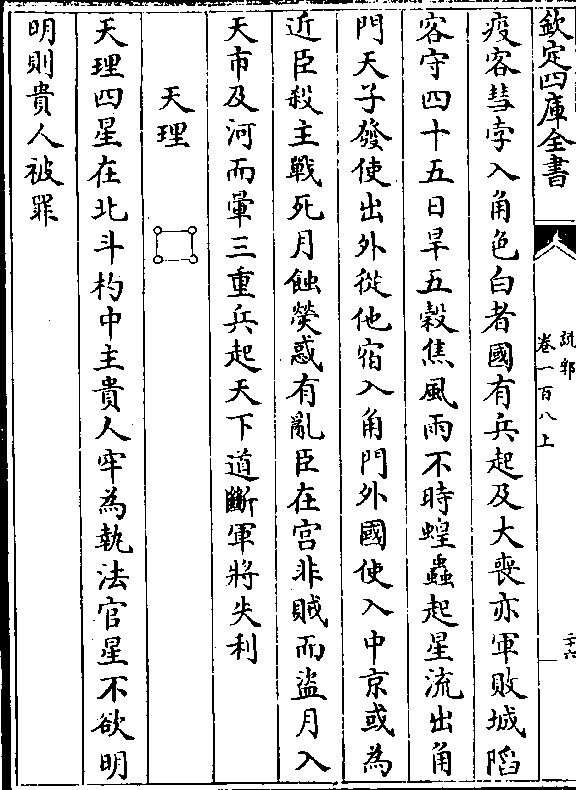 欽定四庫全書
說郛
卷一百八上
二十六
疫客彗孛入角色白者國有兵起及大喪亦軍敗城陷
客守四十五日旱五穀焦風雨不時蝗蟲起星流出角
門天子發使出外從他宿入角門外國使入中京或為
近臣殺主戰死月蝕熒惑有亂臣在宮非賊而盜月入
天市及河而暈三重兵起天下道斷軍將失利
天理
天理四星在北斗杓中主貴人牢為執法官星不欲明
明則貴人被罪